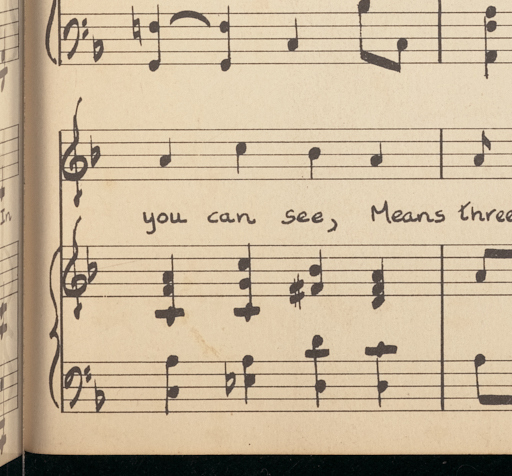 In
you can see, Means three